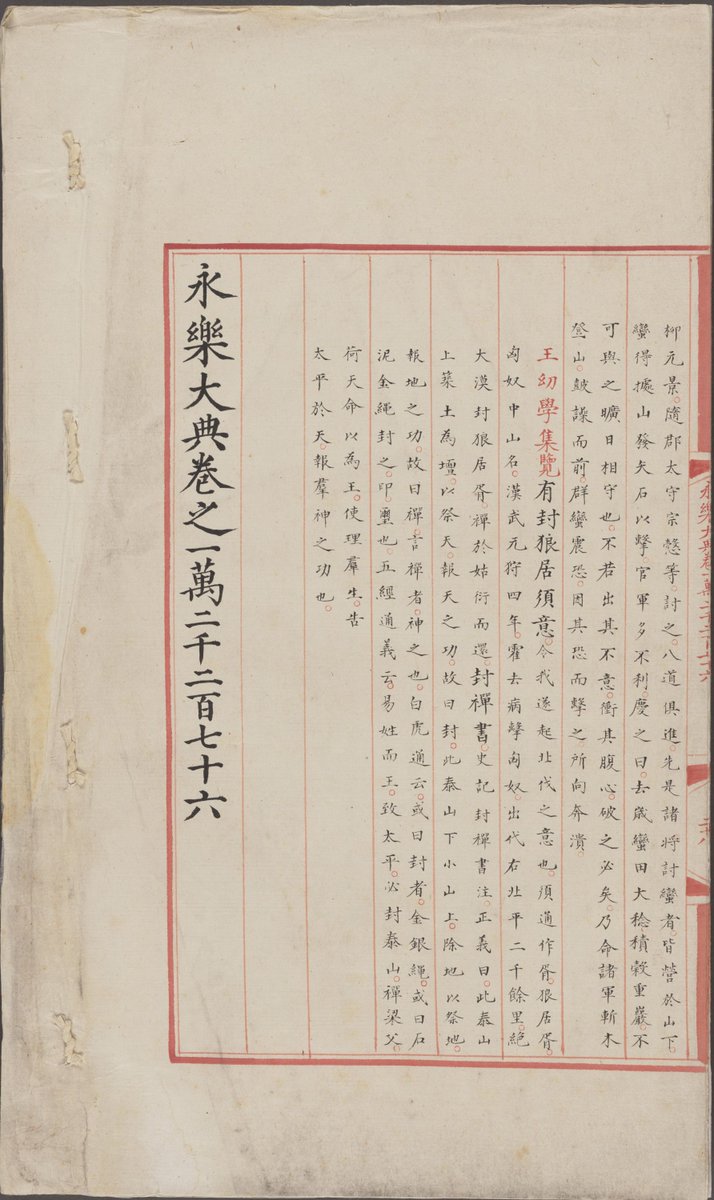 永樂大典卷一萬二千二百七十六
二十八
柳元景。隨郡太守宗慤等。討之。八道俱進。先是諸將討蠻者。皆營於山下。
蠻得據山發矢石以擊。官軍多不利。慶之曰。去歲蠻田大稔。積穀重巖。不
可與之曠日相守也。不若出其不意。衝其腹心。破之必矣。乃命諸軍斬木
登山。鼓譟而前。群蠻震恐。因其恐而擊之。所向奔潰。
王幼學集覽有封狼居須意。今我遂起北伐之意也。須通作胥。狼居胥。
匈奴中山名。漢武元狩四年。霍去病擊匈奴。出代右北平二千餘里。絕
大漠封狼居胥。禪於姑衍而還。封禪書。史記封禪書注。正義曰。此泰山
上築土為壇。以祭天。報天之功。故曰封。此泰山下小山上。除地以祭地。
報地之功。故曰禪。言禪者。神之也。白虎通云。或曰封者。金銀繩。或曰石
泥金繩封之。印璽也。五經通義云。易姓而王。致太平。必封泰山。禪梁父。
荷天命以為王。使理羣生。告
太平於天。報羣神之功也。
永樂大典卷之一萬二千二百七十六